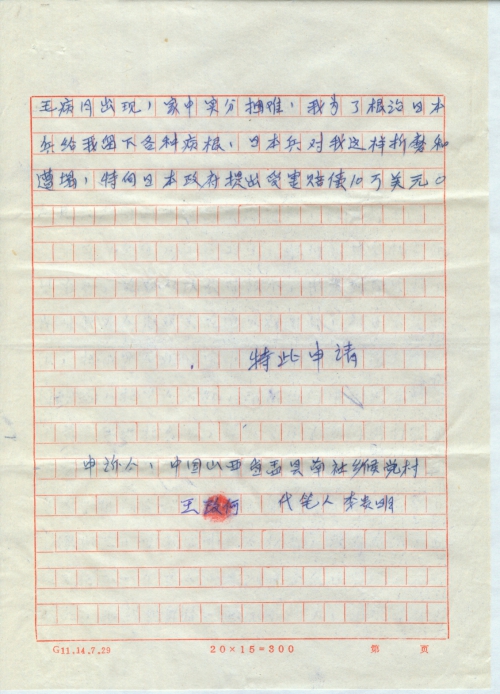 病日出现，家中实分困难，我为了根治日本
兵给我留下各种病根，日本兵对我这样折磨和
遭塌，特向日本政府提出受害赔偿10万美元。
特此申请
申诉人：中国山西省盂县南社乡候党村
王改何 代笔人 李贵明
G11.14.7.29 20×15=300 第 页